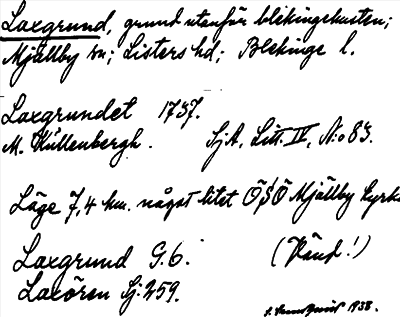 Laxgrund, grund utanför blekingekusten;
Mjällby sn; Listers hd; Blekinge l.
Laxgrundet 1737.
M. Kullenbergh. SjA, Litt. IV, N:o 83.
Läge 7,4 km. något litet ÖSÖ Mjällby kyrka
Laxgrund G.6. (Vänd!)
Laxören Sj: 259.
1938.